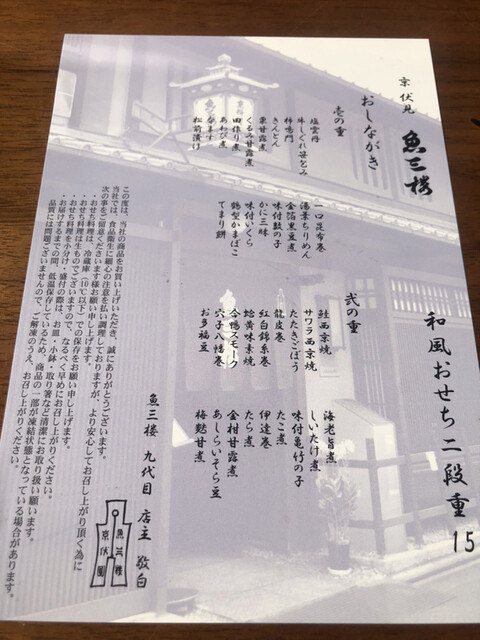 京 伏見 魚三楼
和風おせち二段重
15
おしながき
壱の重
塩雲丹
牛しぐれ笹包み
柿鳴門
きんとん
栗甘露煮
くるみ甘露煮
田作り煮
あわび煮
なます
松前漬け
一口昆布巻
湯葉ちりめん
金箔黒豆煮
味付数の子
かに三昧
味付いくら
鶴型かまぼこ
てまり餅
弐の重
鮭西京焼
サワラ西京焼
たたきごぼう
龍皮巻
紅白錦糸巻
蛤黄味素焼
合鴨スモーク
穴子八幡巻
お多福豆
海老旨煮
しいたけ煮
味付亀竹の子
たこ煮
伊達巻
たら煮
金柑甘露煮
あしらいそら豆
梅麩甘煮
この度は、当社の商品をお買い上げいただき、誠にありがとうございます。
当社では、食品衛生に細心の注意を払い調理しておりますが、より安心してお召し上がり頂く為に
次の事をご留意くださいます様お願い申し上げます。
・おせち料理は、冷蔵庫(10℃以下)での保存をお願い申し上げます。
・おせち料理は生ものでございますので、なるべく早めにお召し上がりください。
・おせち料理を小分け・盛付の際は、お皿・小鉢・取り箸など清潔にお取り扱い願います。
・お届けするまでの間、低温保存しているため、商品の一部が凍結状態となっている場合があります。
品質には問題ございませんので、ご解凍のうえ、お召し上がりください。
魚三楼 九代目 店主 敬白
魚三楼
京伏見